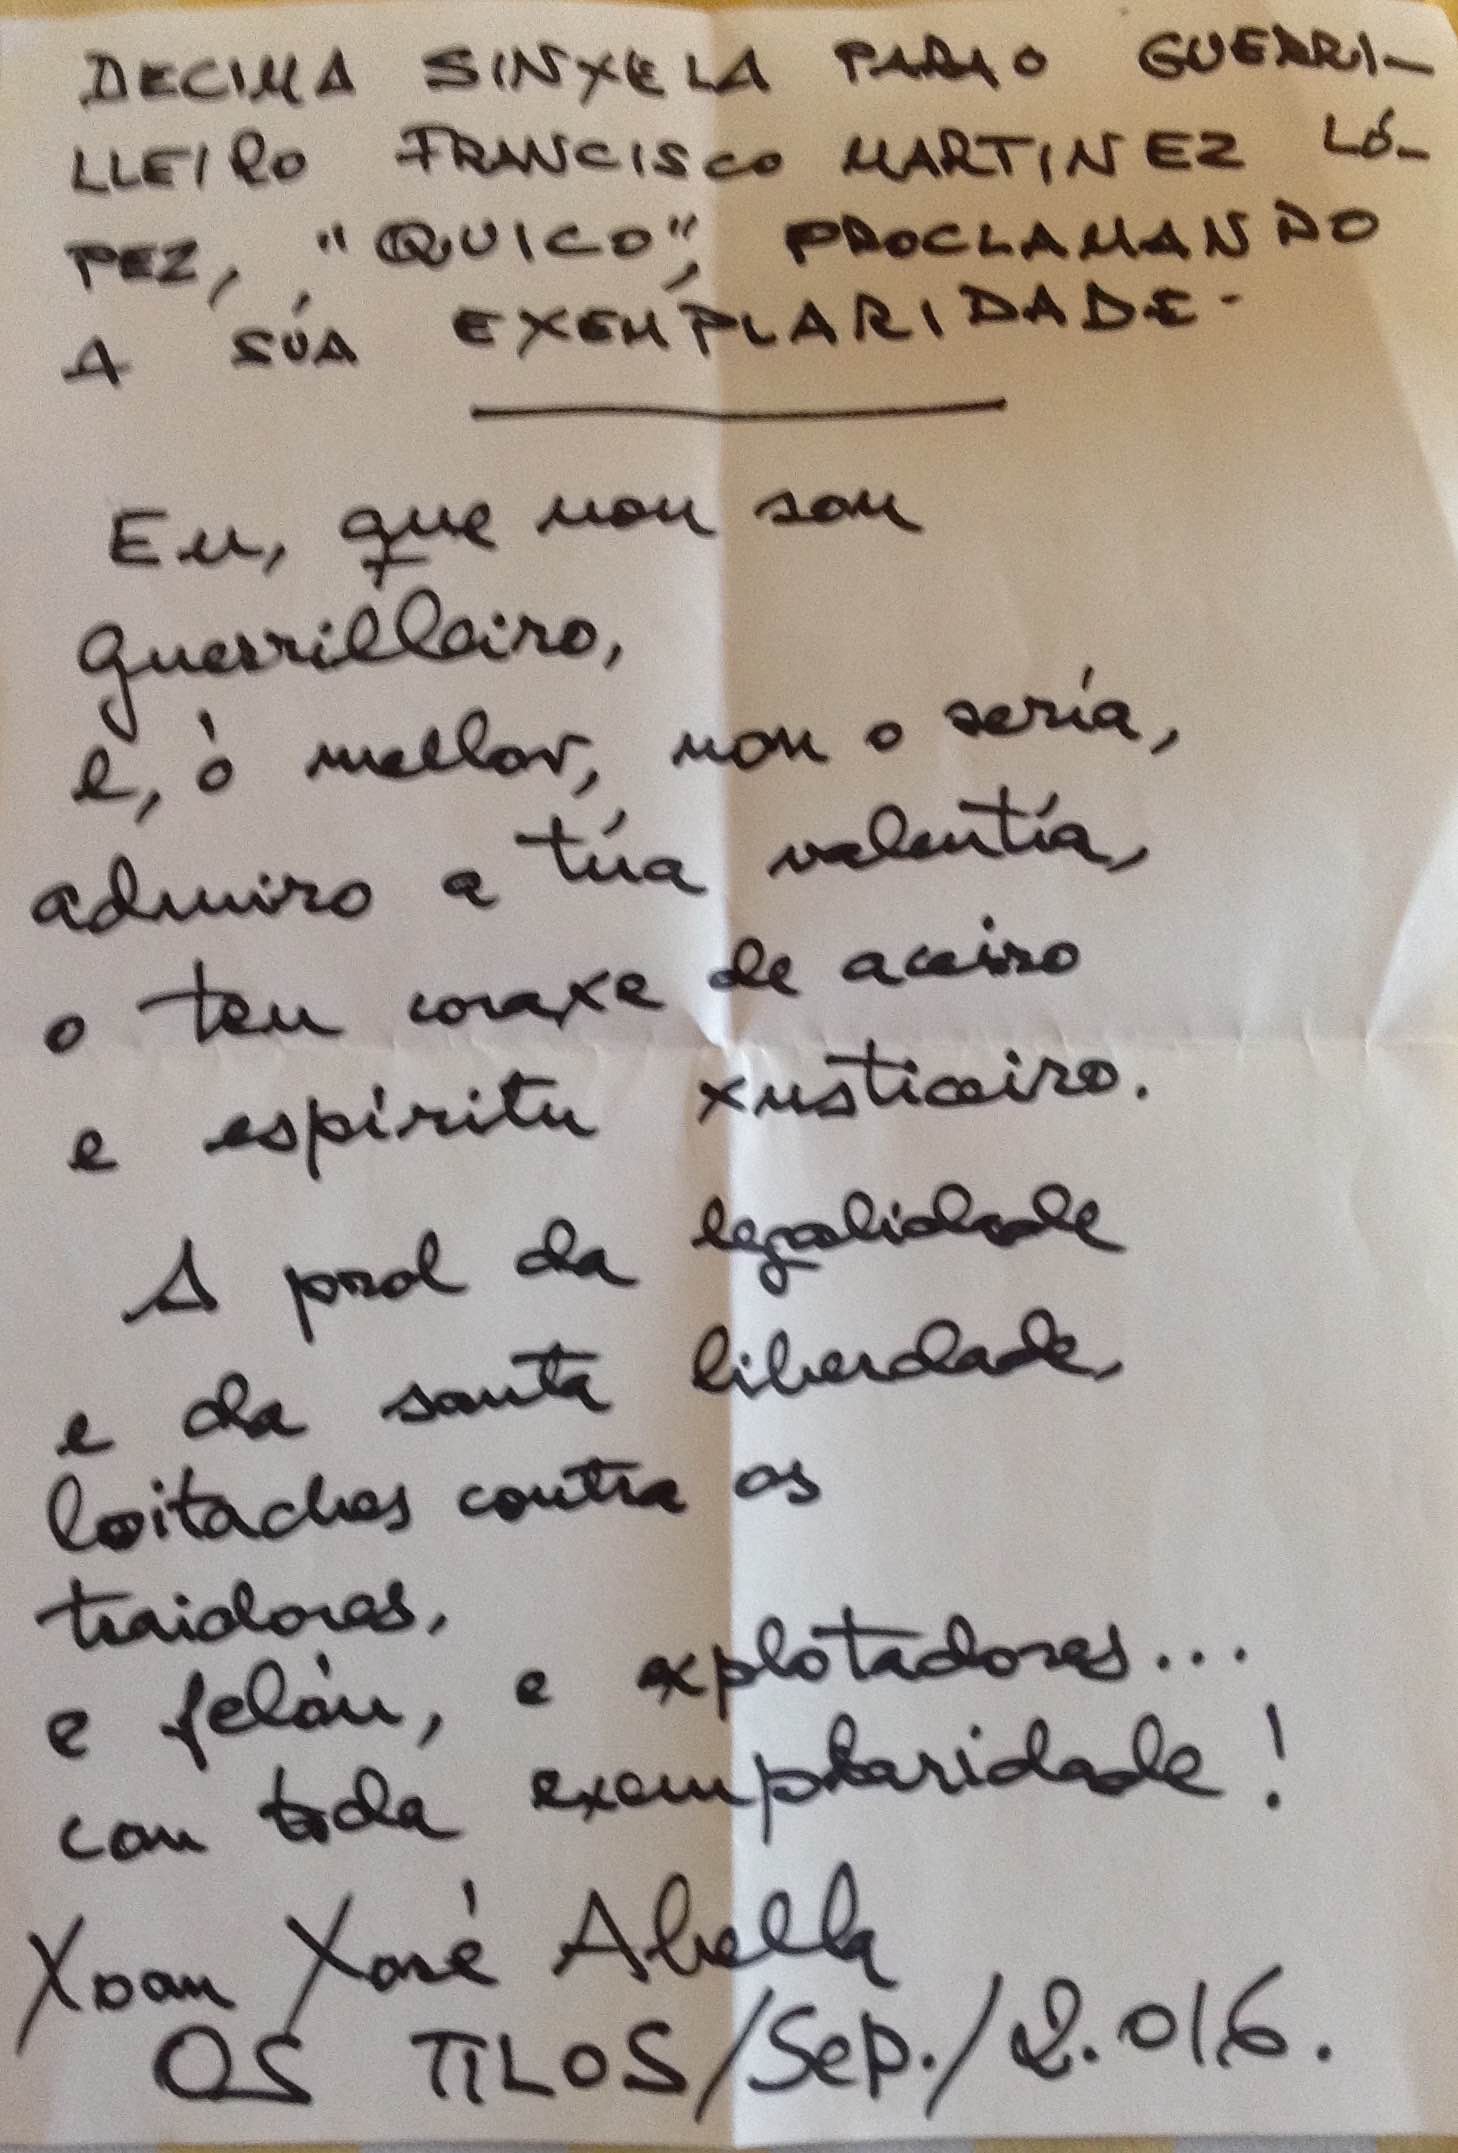 DECIMA SINXELA PARA O GUERRI-
LLEIRO FRANCISCO MARTINEZ LÓ-
PEZ, "QUICO", PROCLAMANDO
A SÚA EXEMPLARIDADE-
Eu, que non son
guerrilleiro,
e, ó mellor, non o sería,
admiro a túa valentía,
o teu coraxe de aceiro
e espíritu xusticeiro.
A prol da legalidade
e da santa liberdade,
loitaches contra os
traidores,
e felón, e explotadores...
con toda exemplaridade!
Xoan Xosé Abella
OS TILOS/Sep./2.016.